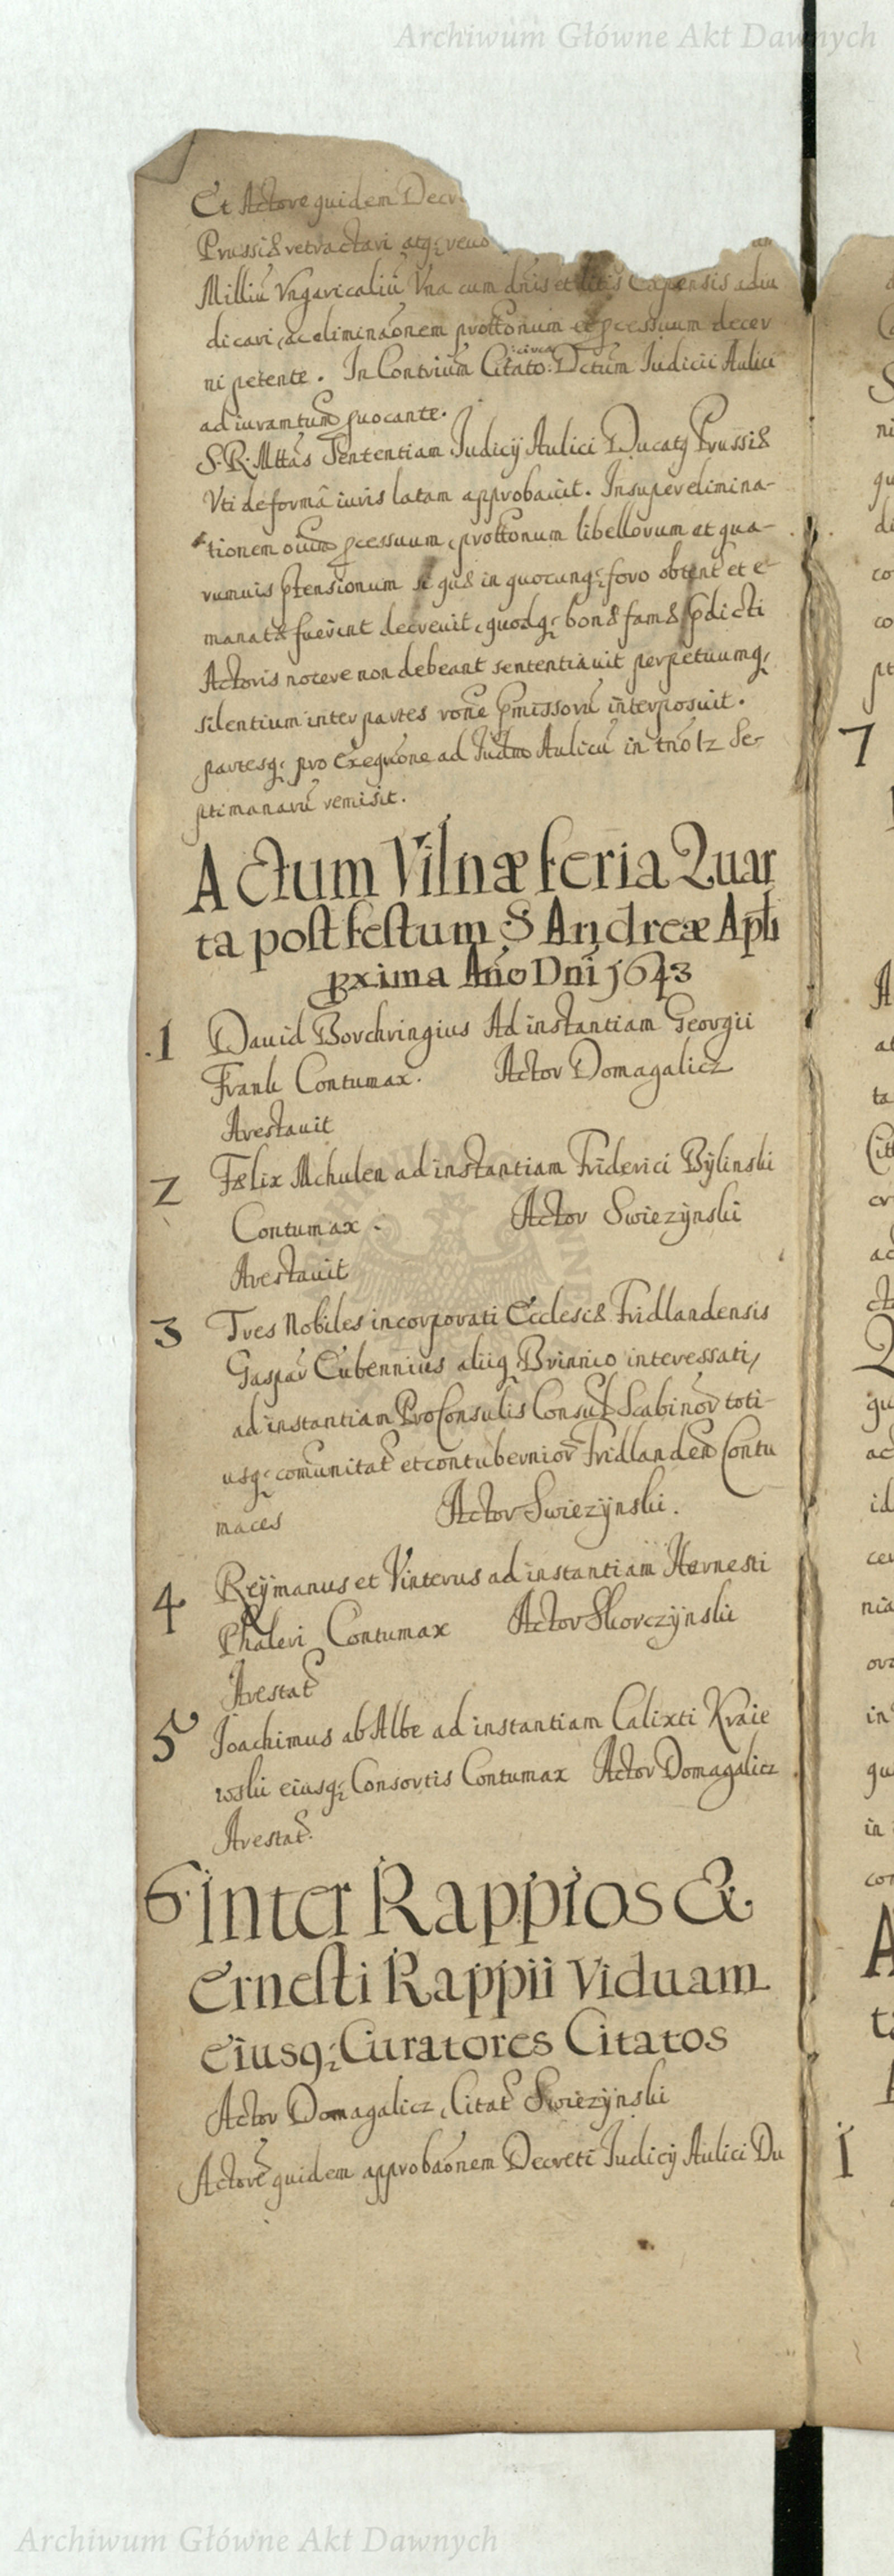 Archiwum Główne Akt Dawnych
Et Actore quidem Decr
Prussiæ retractari atq; revo
Milliũ Vngaricaliũ Vna cum dñis et litis expensis adiu
dicari, ac eliminãonem prottonum et pcessuum decer
ni petente. In Contriũm Citato: circa Dctum Judicii Aulici
ad iuramtum puocante.
S. R. Mttãs Sententiam Judicij Aulici Ducatq Prussiæ
Vti de formâ iuris latam approbauit. Insuper elimina-
tionem oium pcessuum, prottonum libellorum et qua-
rumuis ptensionum si quæ in quocunq; foro obtent et e-
manatæ fuerint decreuit, quodq; bonæ famæ pdicti
Actoris nocere non debeant sententiauit perpetuumq;
silentium inter partes rone pmissorũ interposuit.
partesq; pro exequone ad Judm Aulicũ in tno 12 Se-
ptimanarũ remisit.
Actum Vilnæ feria Quar
ta post festum S Andreæ Apli
pxima Año Dñi 1643
1 Dauid Borchringius Ad instantiam Georgii
Frank Contumax. Actor Domagalicz
Arestauit
2 Fælix Mchulen ad instantiam Friderici Bÿlinski
Contumax. Actor Swiezÿnski
Arestauit
3 Tres Nobiles incorporati Ecclesiæ Fridlandensis
Gaspar Cubennius aliiq; Brinnico interessati,
ad instantiam ProConsulis Consul Scabinor toti-
usq; comunitat et contubernior Fridlanden Contu
maces Actor Swiezÿnski.
4 Reÿmanus et Vinterus ad instantiam Hernesti
Phaleri Contumax Actor Skorczÿnski
Arestat
5 Joachimus ab Albe ad instantiam Calixti Kraie
wski eiusq; Consortis Contumax Actor Domagalicz
Arestat.
6. Inter Rappios &
Ernesti Rappii Viduam
eiusq; Curatores Citatos
Actor Domagalicz, Citat Swiezÿnski
Actore quidem approbãonem Decreti Judicij Aulici Du
7
1
Archiwum Główne Akt Dawnych